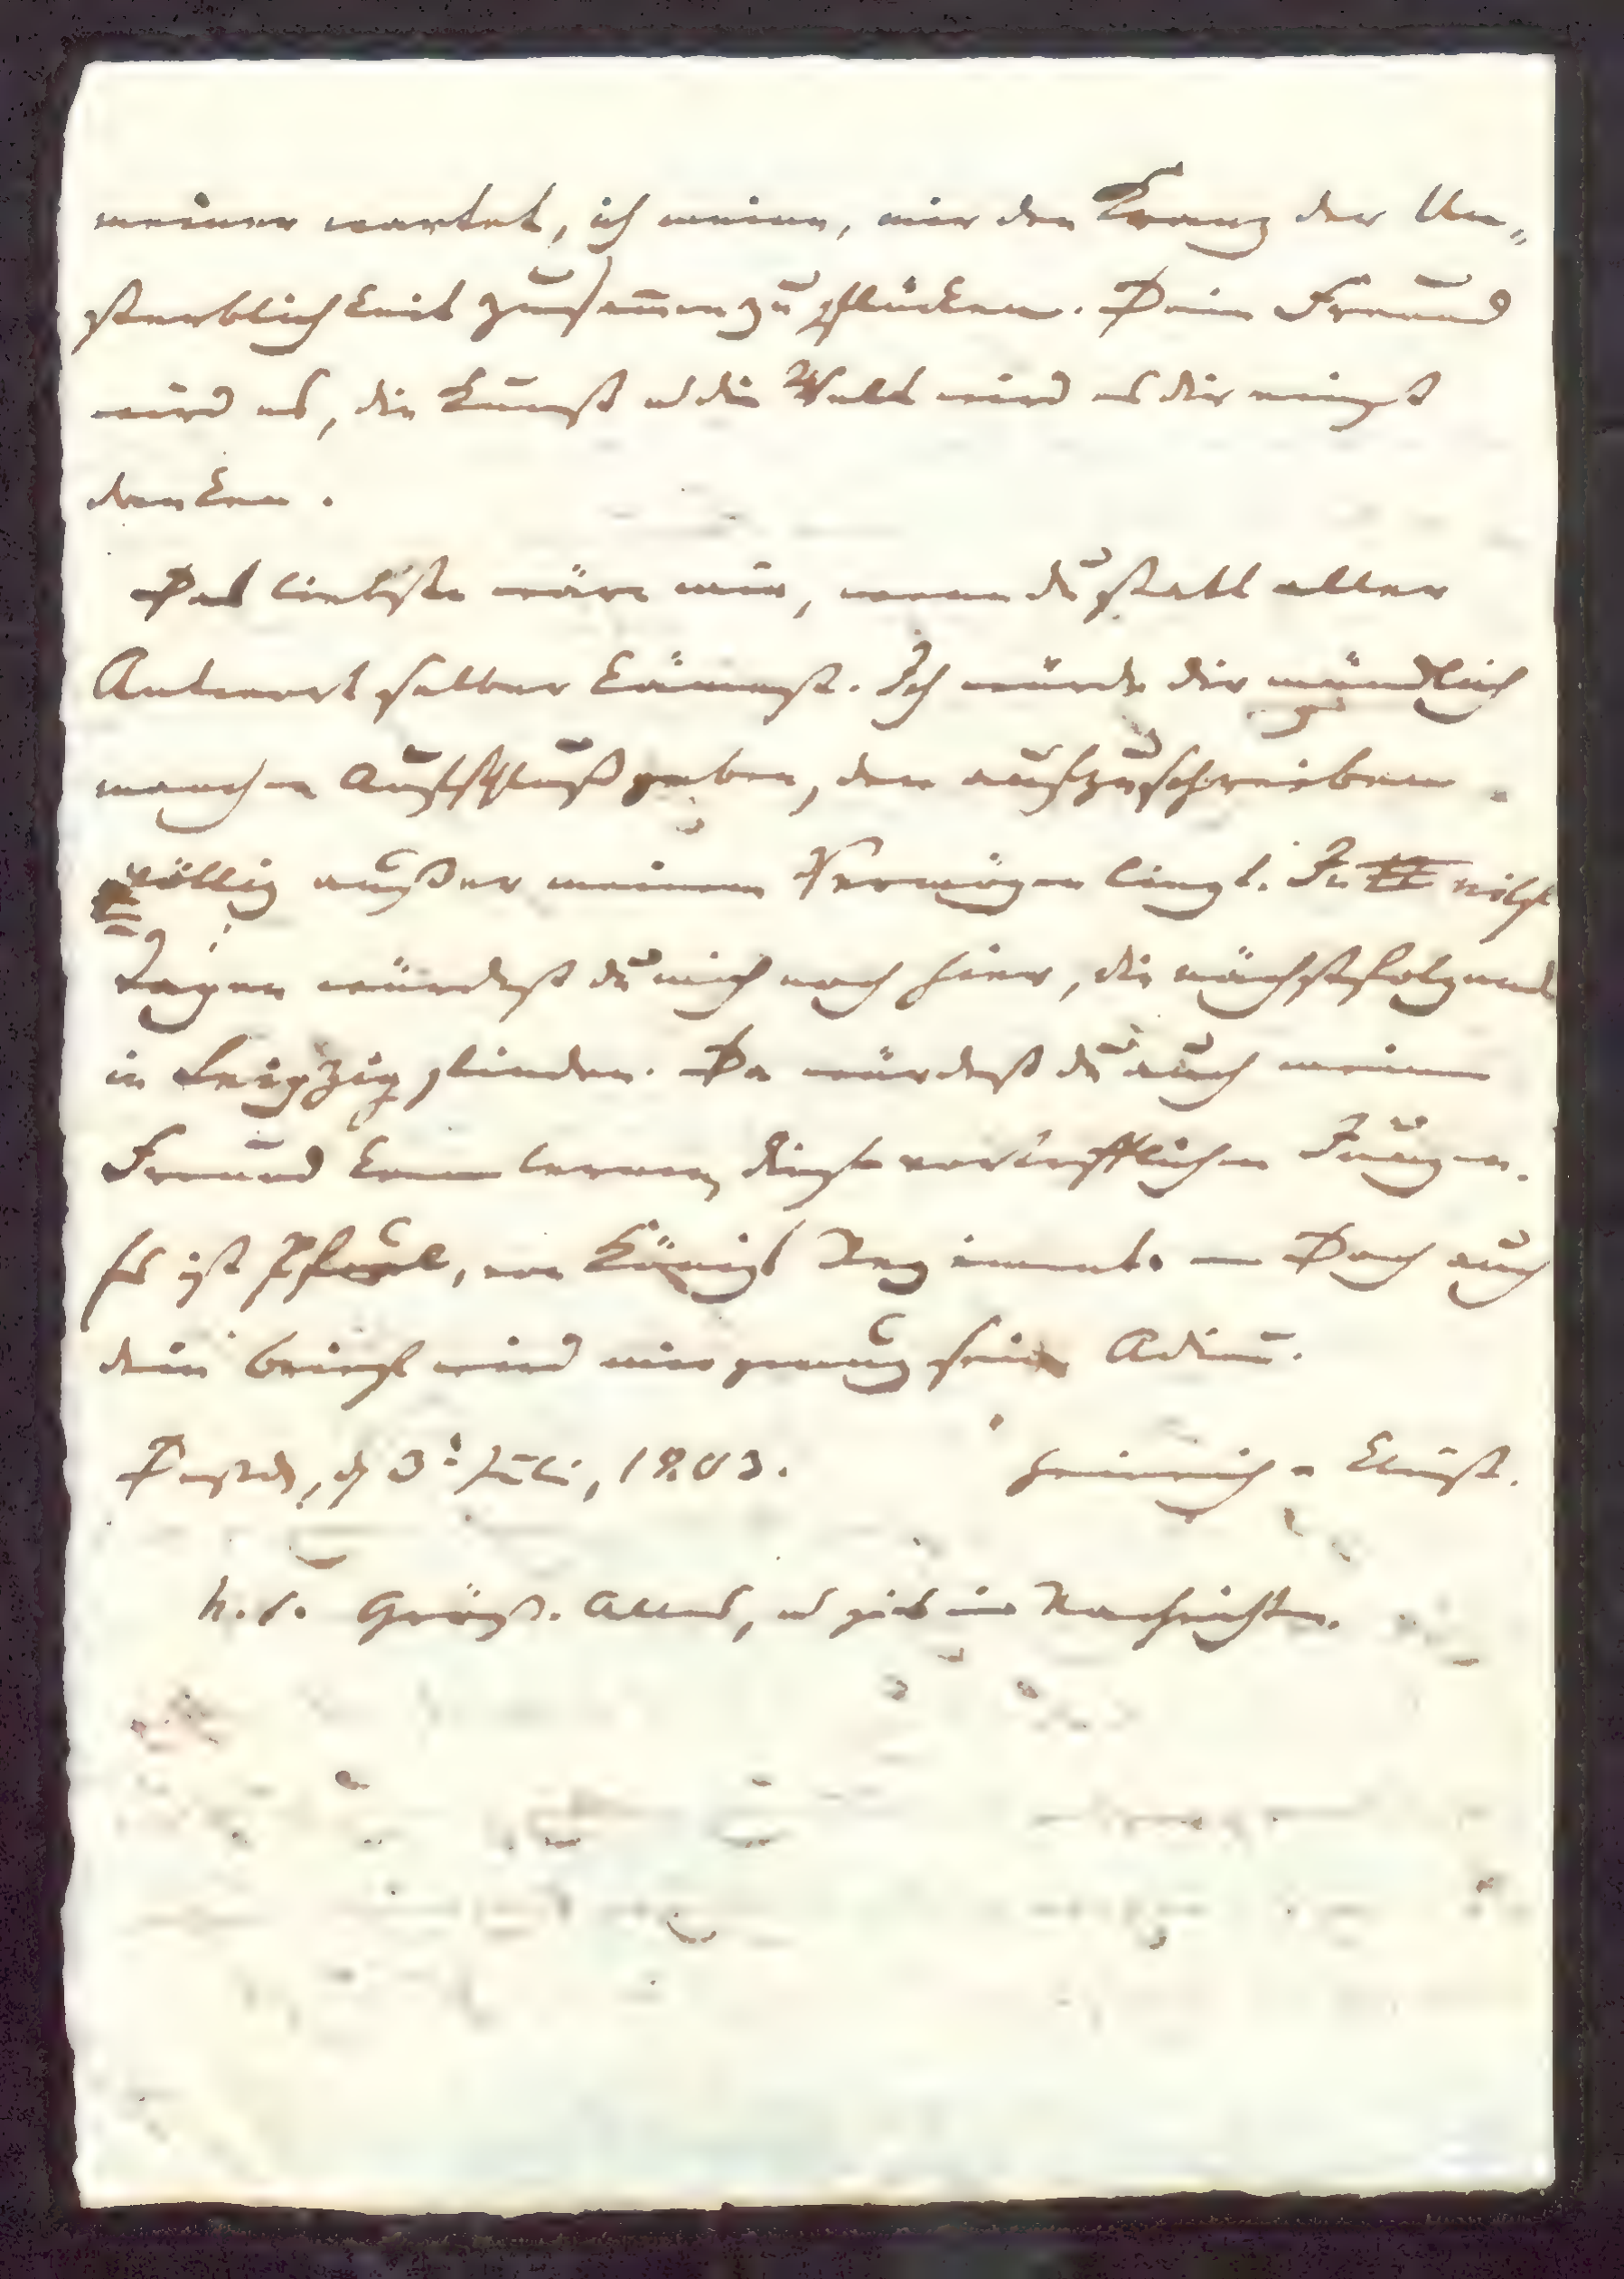 meiner wartet, ich meine, mir den Kranz der Un„
sterblichkeit zusammenzupflücken. Dein Freund
wird es, die Kunst u die Welt wird es dir einst
danken.
Das liebste wäre mir, wenn du statt aller
Antwort selber kämest. Ich würde dir mündlich
manchen Aufschluß geben, den aufzuschreiben
völlig außer meinem Vermögen liegt. In eilf
Tagen würdest du mich noch hier, die nächstfolgend
in Leipzig finden. Da würdest du auch meinen
Freund kennen lernen, diesen vortrefflichen Jungen.
Es ist Pfuel, von Königs Regiment. — Doch auch
dein Brief wird mir genug sein. Adieu.
Dresden, d 3t Juli, 1803. Heinrich v Kleist.
N. S. Grüße Alles, u gieb mir Nachrichten.